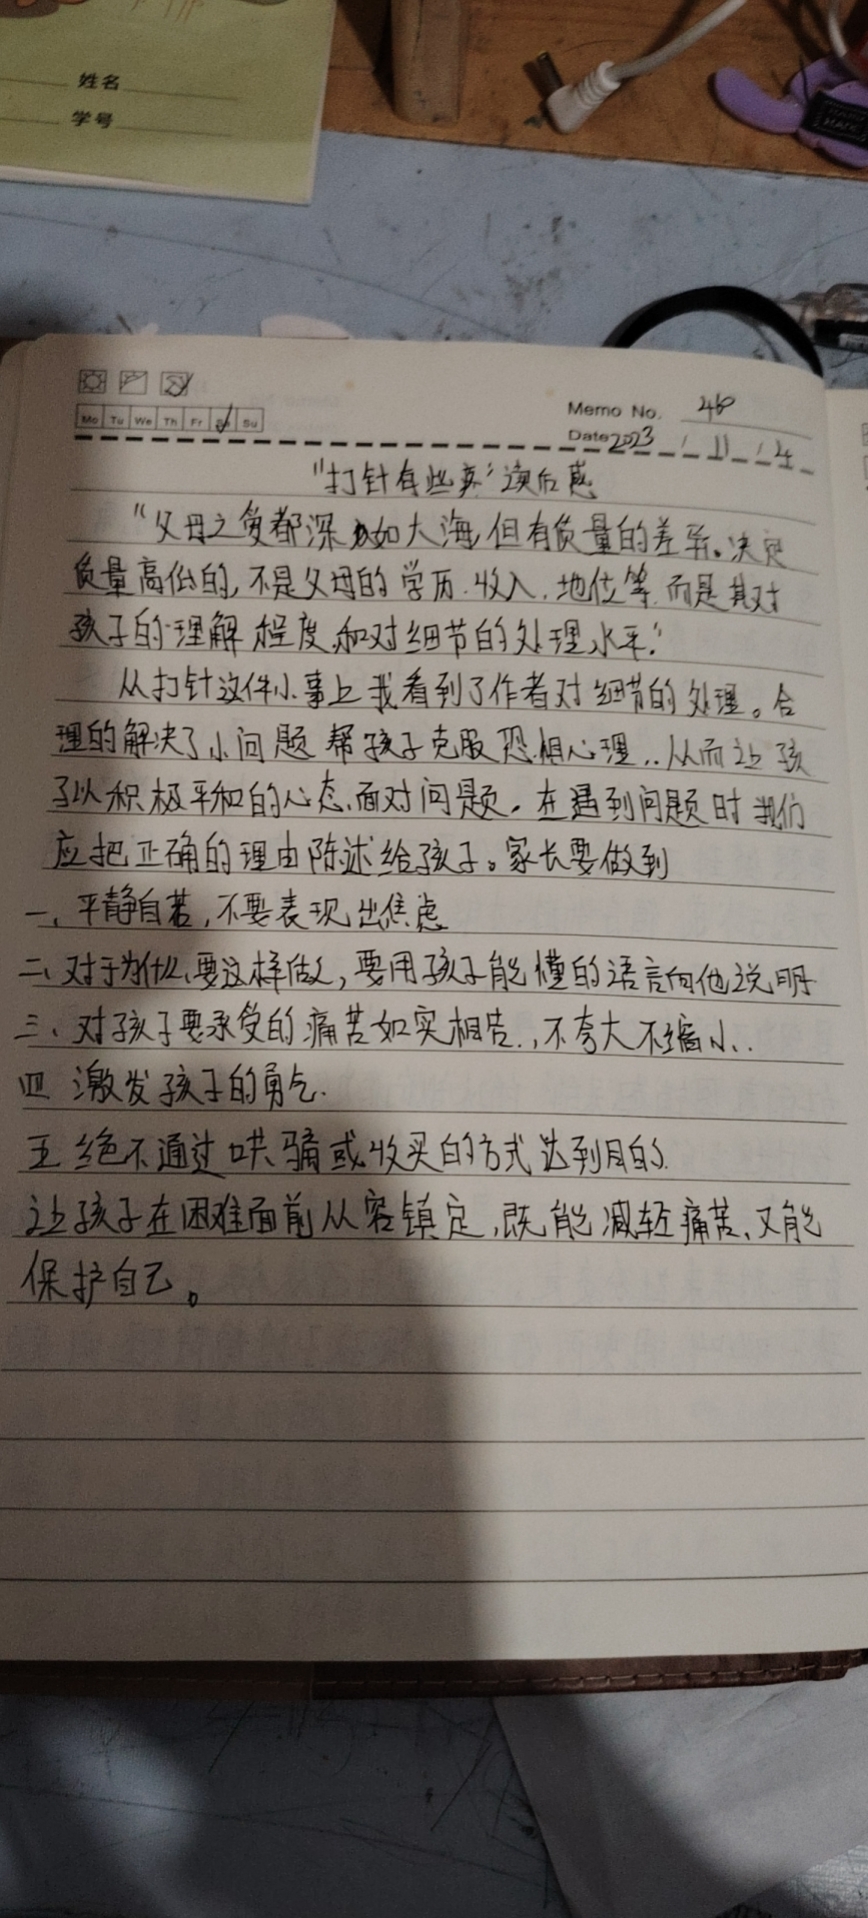 姓名
学号
Mo Tu We Th Fr Sa Su
Memo No. 48
Date 2023 / 11 / 4
"打针有些疼"读后感
"父母之爱都深如大海,但有质量的差异。决定
质量高低的,不是父母的学历、收入、地位等,而是其对
孩子的理解程度,和对细节的处理水平."
从打针这件小事上我看到了作者对细节的处理。合
理的解决了小问题 帮孩子克服恐惧心理..从而让孩
子以积极平和的心态,面对问题。在遇到问题时我们
应把正确的理由陈述给孩子。家长要做到
一、平静自若,不要表现出焦虑
二、对于为什么要这样做,要用孩子能懂的语言向他说明
三、对孩子要承受的痛苦如实相告.,不夸大不缩小..
四 激发孩子的勇气.
五 绝不通过哄、骗或收买的方式达到目的.
让孩子在困难面前从容镇定,既能减轻痛苦、又能
保护自己。